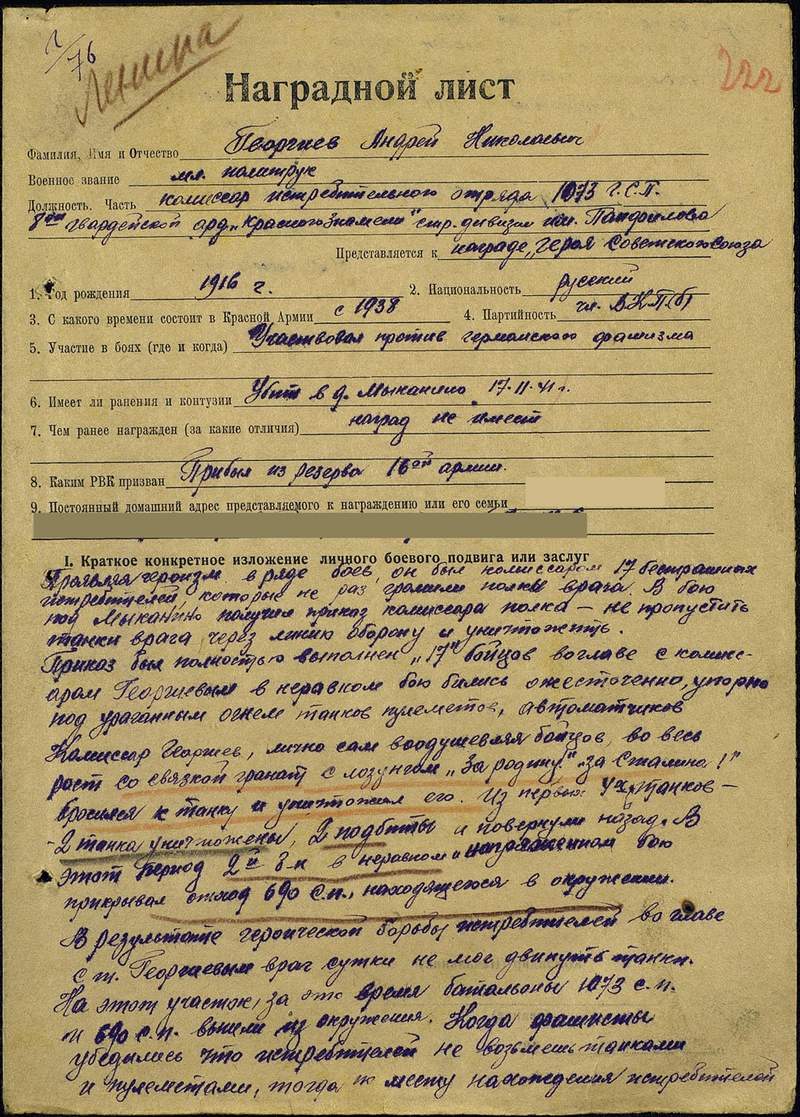 2/76
Ленина
222
Наградной лист
Фамилия, Имя и Отчество Георгиев Андрей Николаевич
Военное звание мл. политрук
Должность. Часть комиссар истребительного отряда 1073 Г.С.П.
8ой гвардейской орд. „Красного Знамени" стр. дивизии им. Панфилова
Представляется к награде „Героя Советского Союза
1. Год рождения 1916 г. 2. Национальность русский
3. С какого времени состоит в Красной Армии с 1938 4. Партийность чл. ВКП(б)
5. Участие в боях (где и когда) Участвовал против германского фашизма
6. Имеет ли ранения и контузии Убит в д. Мыканино 17.11.41 г.
7. Чем ранее награжден (за какие отличия) наград не имеет
8. Каким РВК призван Прибыл из резерва 16ой армии.
9. Постоянный домашний адрес представляемого к награждению или его семьи
I. Краткое конкретное изложение личного боевого подвига или заслуг
Проявляя героизм в ряде боев, он был комиссаром 17 бесстрашных
истребителей, которые не раз громили полки врага. В бою
под Мыканино получил приказ комиссара полка — не пропустить
танки врага через линию обороны и уничтожить.
Приказ был полностью выполнен „17" бойцов во главе с комисс-
аром Георгиевым в неравном бою бились ожесточенно, упорно
под ураганным огнем танков пулеметов, автоматчиков
Комиссар Георгиев, лично сам воодушевляя бойцов, во весь
рост со связкой гранат с лозунгом „За родину" „за Сталина!"
бросился к танку и уничтожил его. Из первых танков —
- 2 танка уничтожены, 2 подбиты и повернули назад. В
этот период 2й б-н в неравном и напряженном бою
прикрывал отход 690 с.п., находящегося в окружении.
В результате героической борьбы истребителей во главе
с т. Георгиевым враг сутки не мог двинуть танки.
На этот участок, за это время батальоны 1073 с.п.
и 690 с.п. вышли из окружения. Когда фашисты
убедились что истребителей не возьмешь танками
и пулеметами, тогда к месту нахождения истребителей